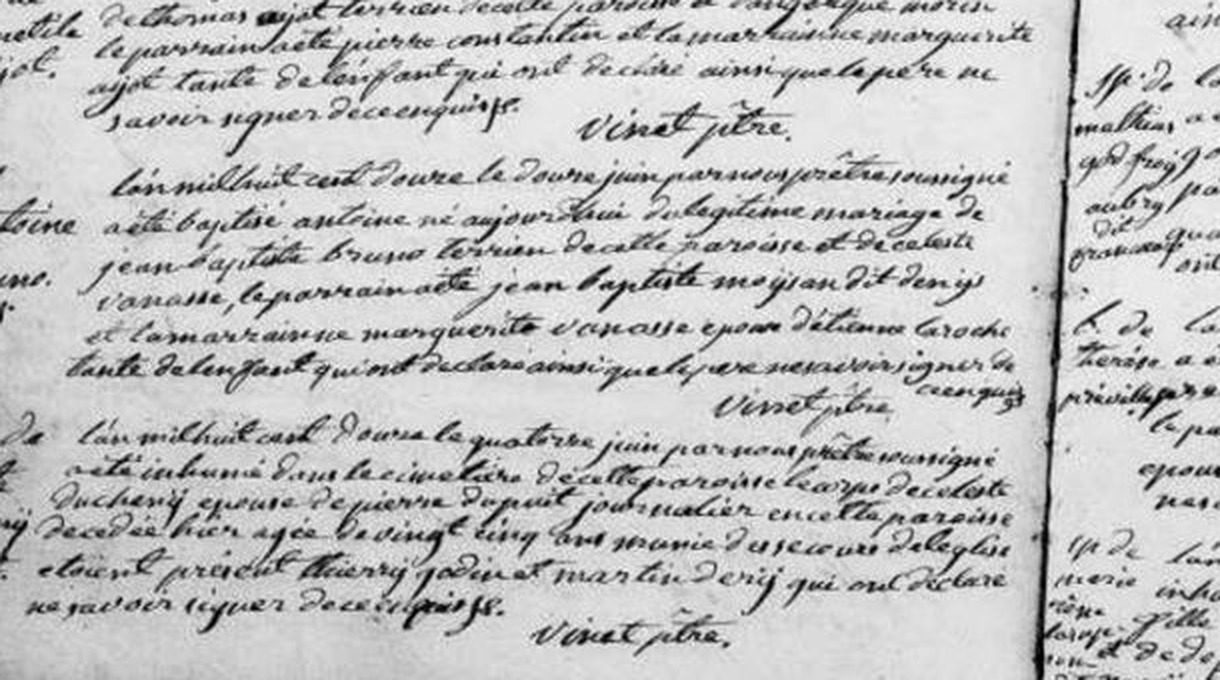 de thomas ajot terrien de cette paroisse et d'angelique morin
le parrain a été pierre constantin et la marrainne marguerite
ajot tante de l'enfant qui ont declaré ainsi que le pere ne
savoir signer de ce enquis ff.
vinet ptre.
l'an mil huit cent douze le douze juin par nous prêtre soussigné
a été baptisé antoine né aujourdhui du legitime mariage de
jean baptiste bruno terrien de cette paroisse et de celeste
vanasse, le parrain a été jean baptiste moysan dit denys
et la marrainne marguerite vanasse epouse d'etienne laroche
tante de lenfant qui ont declaré ainsi que le pere ne savoir signer de
ce enquis
vinet ptre
l'an mil huit cent douze le quatorze juin par nous prêtre soussigné
a été inhumé dans le cimetiere de cette paroisse le corps de celeste
ducheny epouse de pierre dupuit journalier en cette paroisse
decedée hier agée de vingt cinq ans munie des secours de leglise
etoient présent thierry jodin et martin dery qui ont declaré
ne savoir signer de ce enquis ff.
vinet ptre.
toine
de
ain
sp. de la
mathias a e
god froy jo
aubry pa
dit qua
ont
b. de la
therése a e
préville pre
le pa
epous
nesa
sp de l'an
merie inhu
fille
et de de